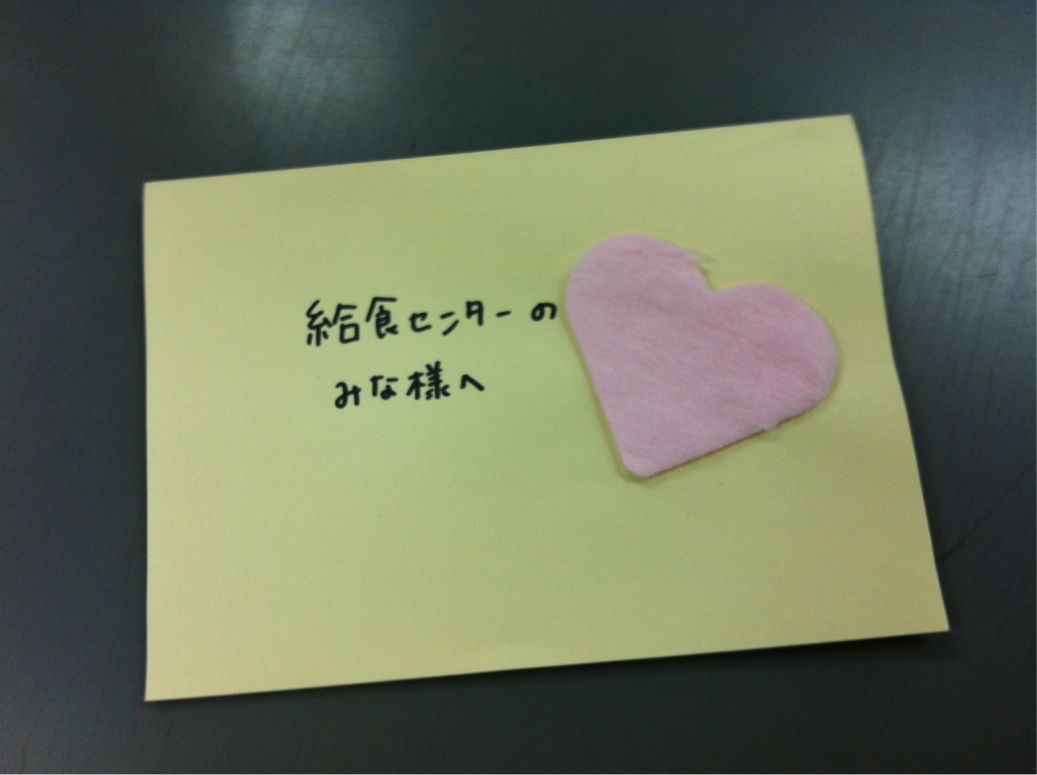 給食センターの
みな様へ